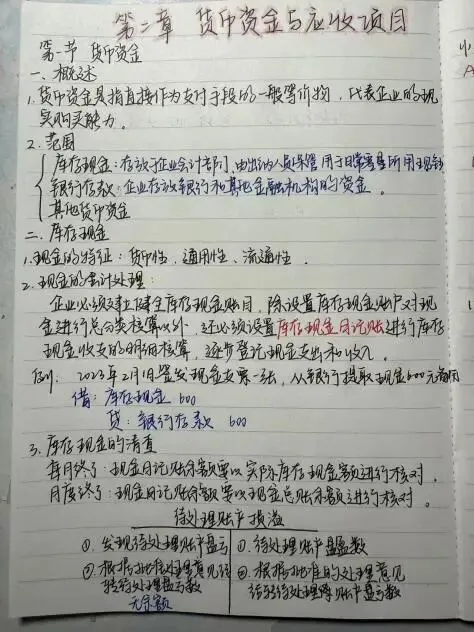 第二章 货币资金与应收项目
第一节 货币资金
一、概述
1.货币资金是指直接作为支付手段的一般等价物，代表企业的现
实购买能力。
2.范围
库存现金：存放于企业会计部门、由出纳人员保管用于日常零星所用现金
银行存款：企业存放银行和其他金融机构的资金。
其他货币资金
二、库存现金
1.现金的特征：货币性、通用性、流通性。
2.现金的会计处理：
企业必须建立健全库存现金账目，除设置库存现金账户对现
金进行总分类核算以外，还必须设置库存现金日记账进行库存
现金收支的明细核算，逐步登记现金支出和收入。
例：2023年2月1日签发现金支票一张，从银行提取现金600元备用
借：库存现金 600
贷：银行存款 600
3.库存现金的清查
每日终了：现金日记账余额要以实际库存现金额进行核对，
月度终了：现金日记账余额要以现金总账余额进行核对。
待处理财产损溢
①.发现待处理财产盘亏
①.待处理财产盘盈数
②.根据批准处理意见结
转待处理盘亏数
②.根据批准的处理意见
结转待处理财产盘亏数
无余额